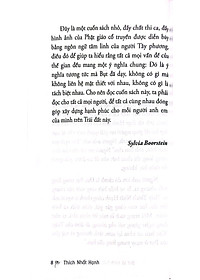 Đây là một cuốn sách nhỏ, đầy chất thi ca, đầy
hình ảnh của Phật giáo cổ truyền được diễn bày
bằng ngôn ngữ tâm linh của người Tây phương,
điều đó để giúp ta hiểu rằng tất cả mọi vấn đề của
thế gian đều mang một ý nghĩa chung: Đó là ý
nghĩa tương tức mà Bụt đã dạy, không có gì mà
không liên hệ mật thiết với nhau, không có gì là
tách biệt nhau. Cho nên đọc cuốn sách này, ta phải
đọc cho tất cả mọi người, để tất cả cùng nhau đóng
góp xây dựng hạnh phúc cho mỗi người anh em
của mình trên Trái đất này.
Sylvia Boorstein
8 Thích Nhất Hạnh